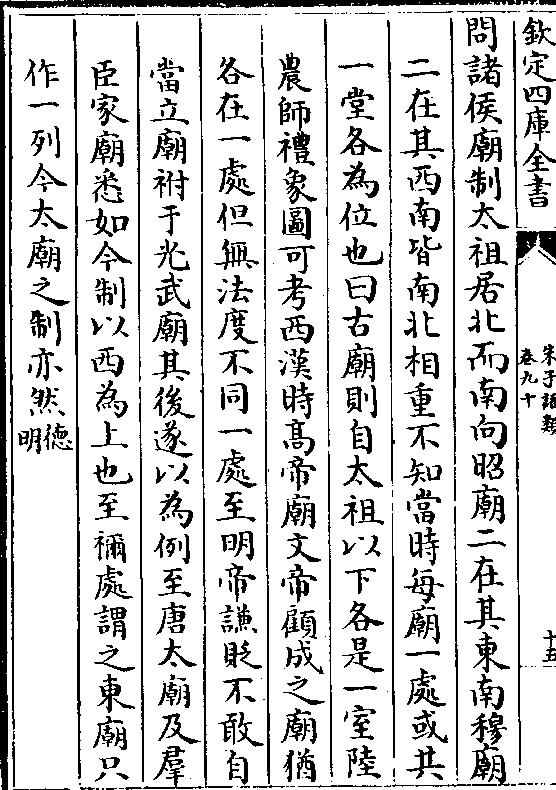 欽定四庫全書
朱子語類
卷九十
十五
問諸侯廟制太祖居北而南向昭廟二在其東南穆廟
二在其西南皆南北相重不知當時每廟一處或共
一堂各為位也曰古廟則自太祖以下各是一室陸
農師禮象圖可考西漢時髙帝廟文帝顧成之廟猶
各在一處但無法度不同一處至明帝謙貶不敢自
當立廟祔于光武廟其後遂以為例至唐太廟及羣
臣家廟悉如今制以西為上也至禰處謂之東廟只
作一列今太廟之制亦然德
明